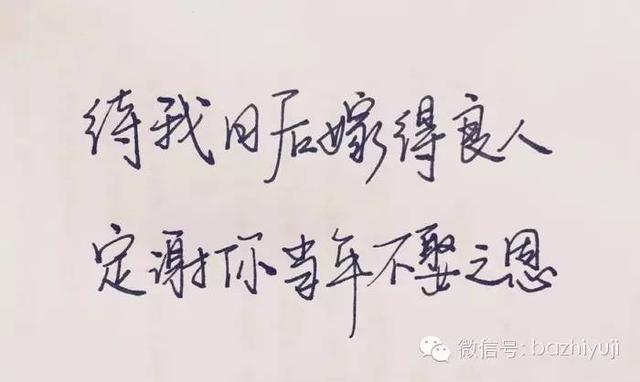 待我日后嫁得良人
定谢你当年不娶之恩
微信号: bazhiyuji